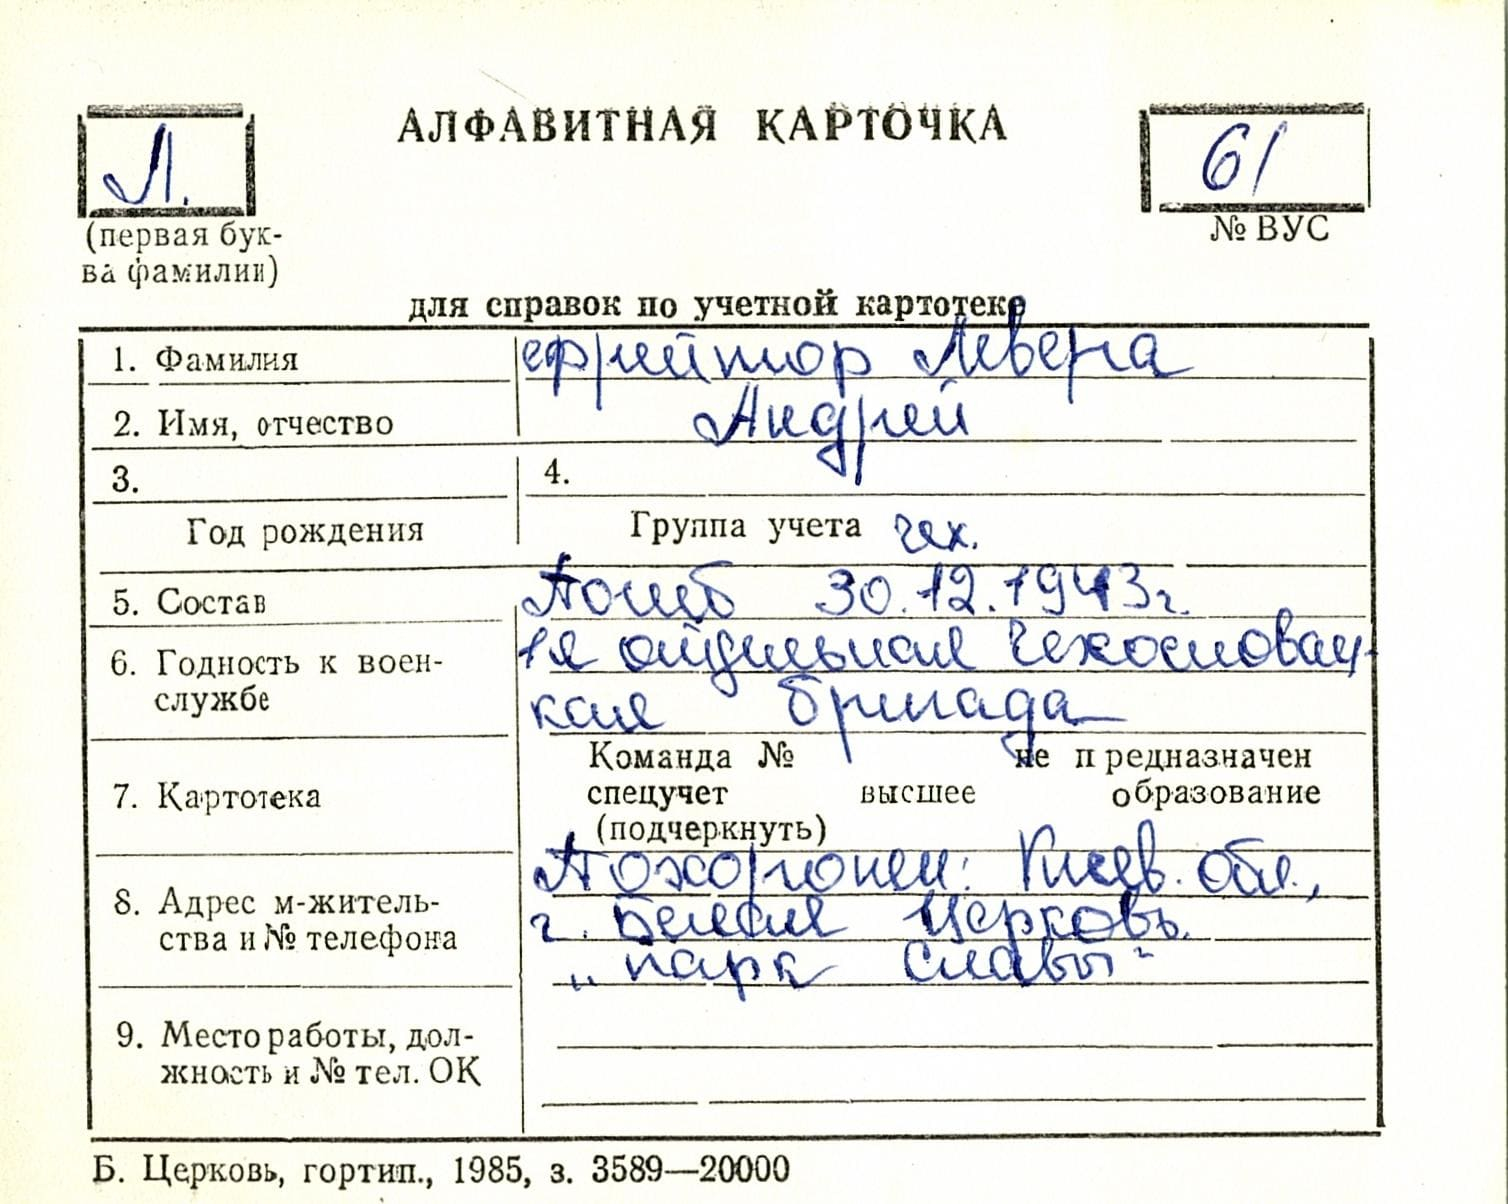 АЛФАВИТНАЯ КАРТОЧКА
Л.
61
(первая бук-
ва фамилии)
№ ВУС
для справок по учетной картотеке
1. Фамилия ефрейтор Левера
2. Имя, отчество Андрей
3. 4.
Год рождения Группа учета чех.
5. Состав Погиб 30.12.1943г.
6. Годность к воен-
службе
1я отдельная Чехословац-
кая бригада
7. Картотека
Команда № не предназначен
спецучет высшее образование
(подчеркнуть)
8. Адрес м-житель-
ства и № телефона
Похоронен: Киев. обл.,
г. Белая Церковь.
„парк Славы"
9. Место работы, дол-
жность и № тел. ОК
Б. Церковь, гортип., 1985, з. 3589—20000